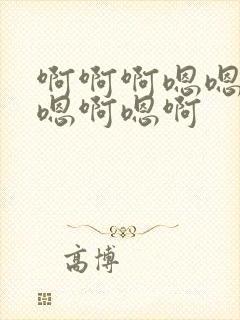 啊啊啊嗯嗯
嗯啊嗯啊
高博